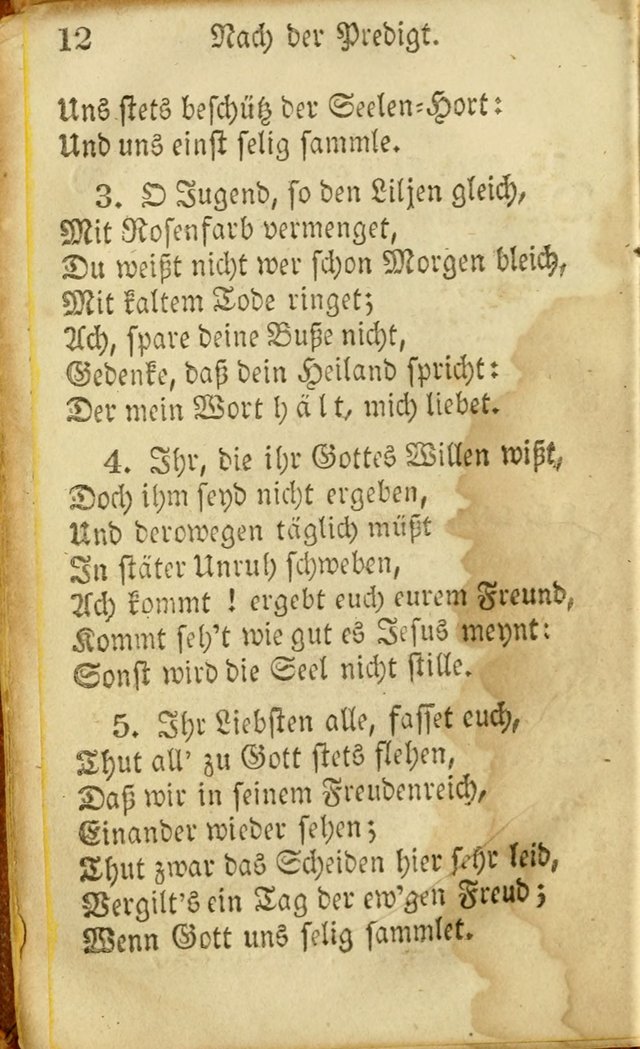 12 Nach der Predigt.
Uns stets beschütz der Seelen-Hort:
Und uns einst selig sammle.
3. O Jugend, so den Liljen gleich,
Mit Rosenfarb vermenget,
Du weißt nicht wer schon Morgen bleich,
Mit kaltem Tode ringet;
Ach, spare deine Buße nicht,
Gedenke, daß dein Heiland spricht:
Der mein Wort hält, mich liebet.
4. Ihr, die ihr Gottes Willen wißt,
Doch ihm seyd nicht ergeben,
Und derowegen täglich müßt
In stäter Unruh schweben,
Ach kommt ! ergebt euch eurem Freund,
Kommt seh't wie gut es Jesus meynt:
Sonst wird die Seel nicht stille.
5. Ihr Liebsten alle, fasset euch,
Thut all' zu Gott stets flehen,
Daß wir in seinem Freudenreich,
Einander wieder sehen;
Thut zwar das Scheiden hier sehr leid,
Vergilt's ein Tag der ew'gen Freud;
Wenn Gott uns selig sammlet.